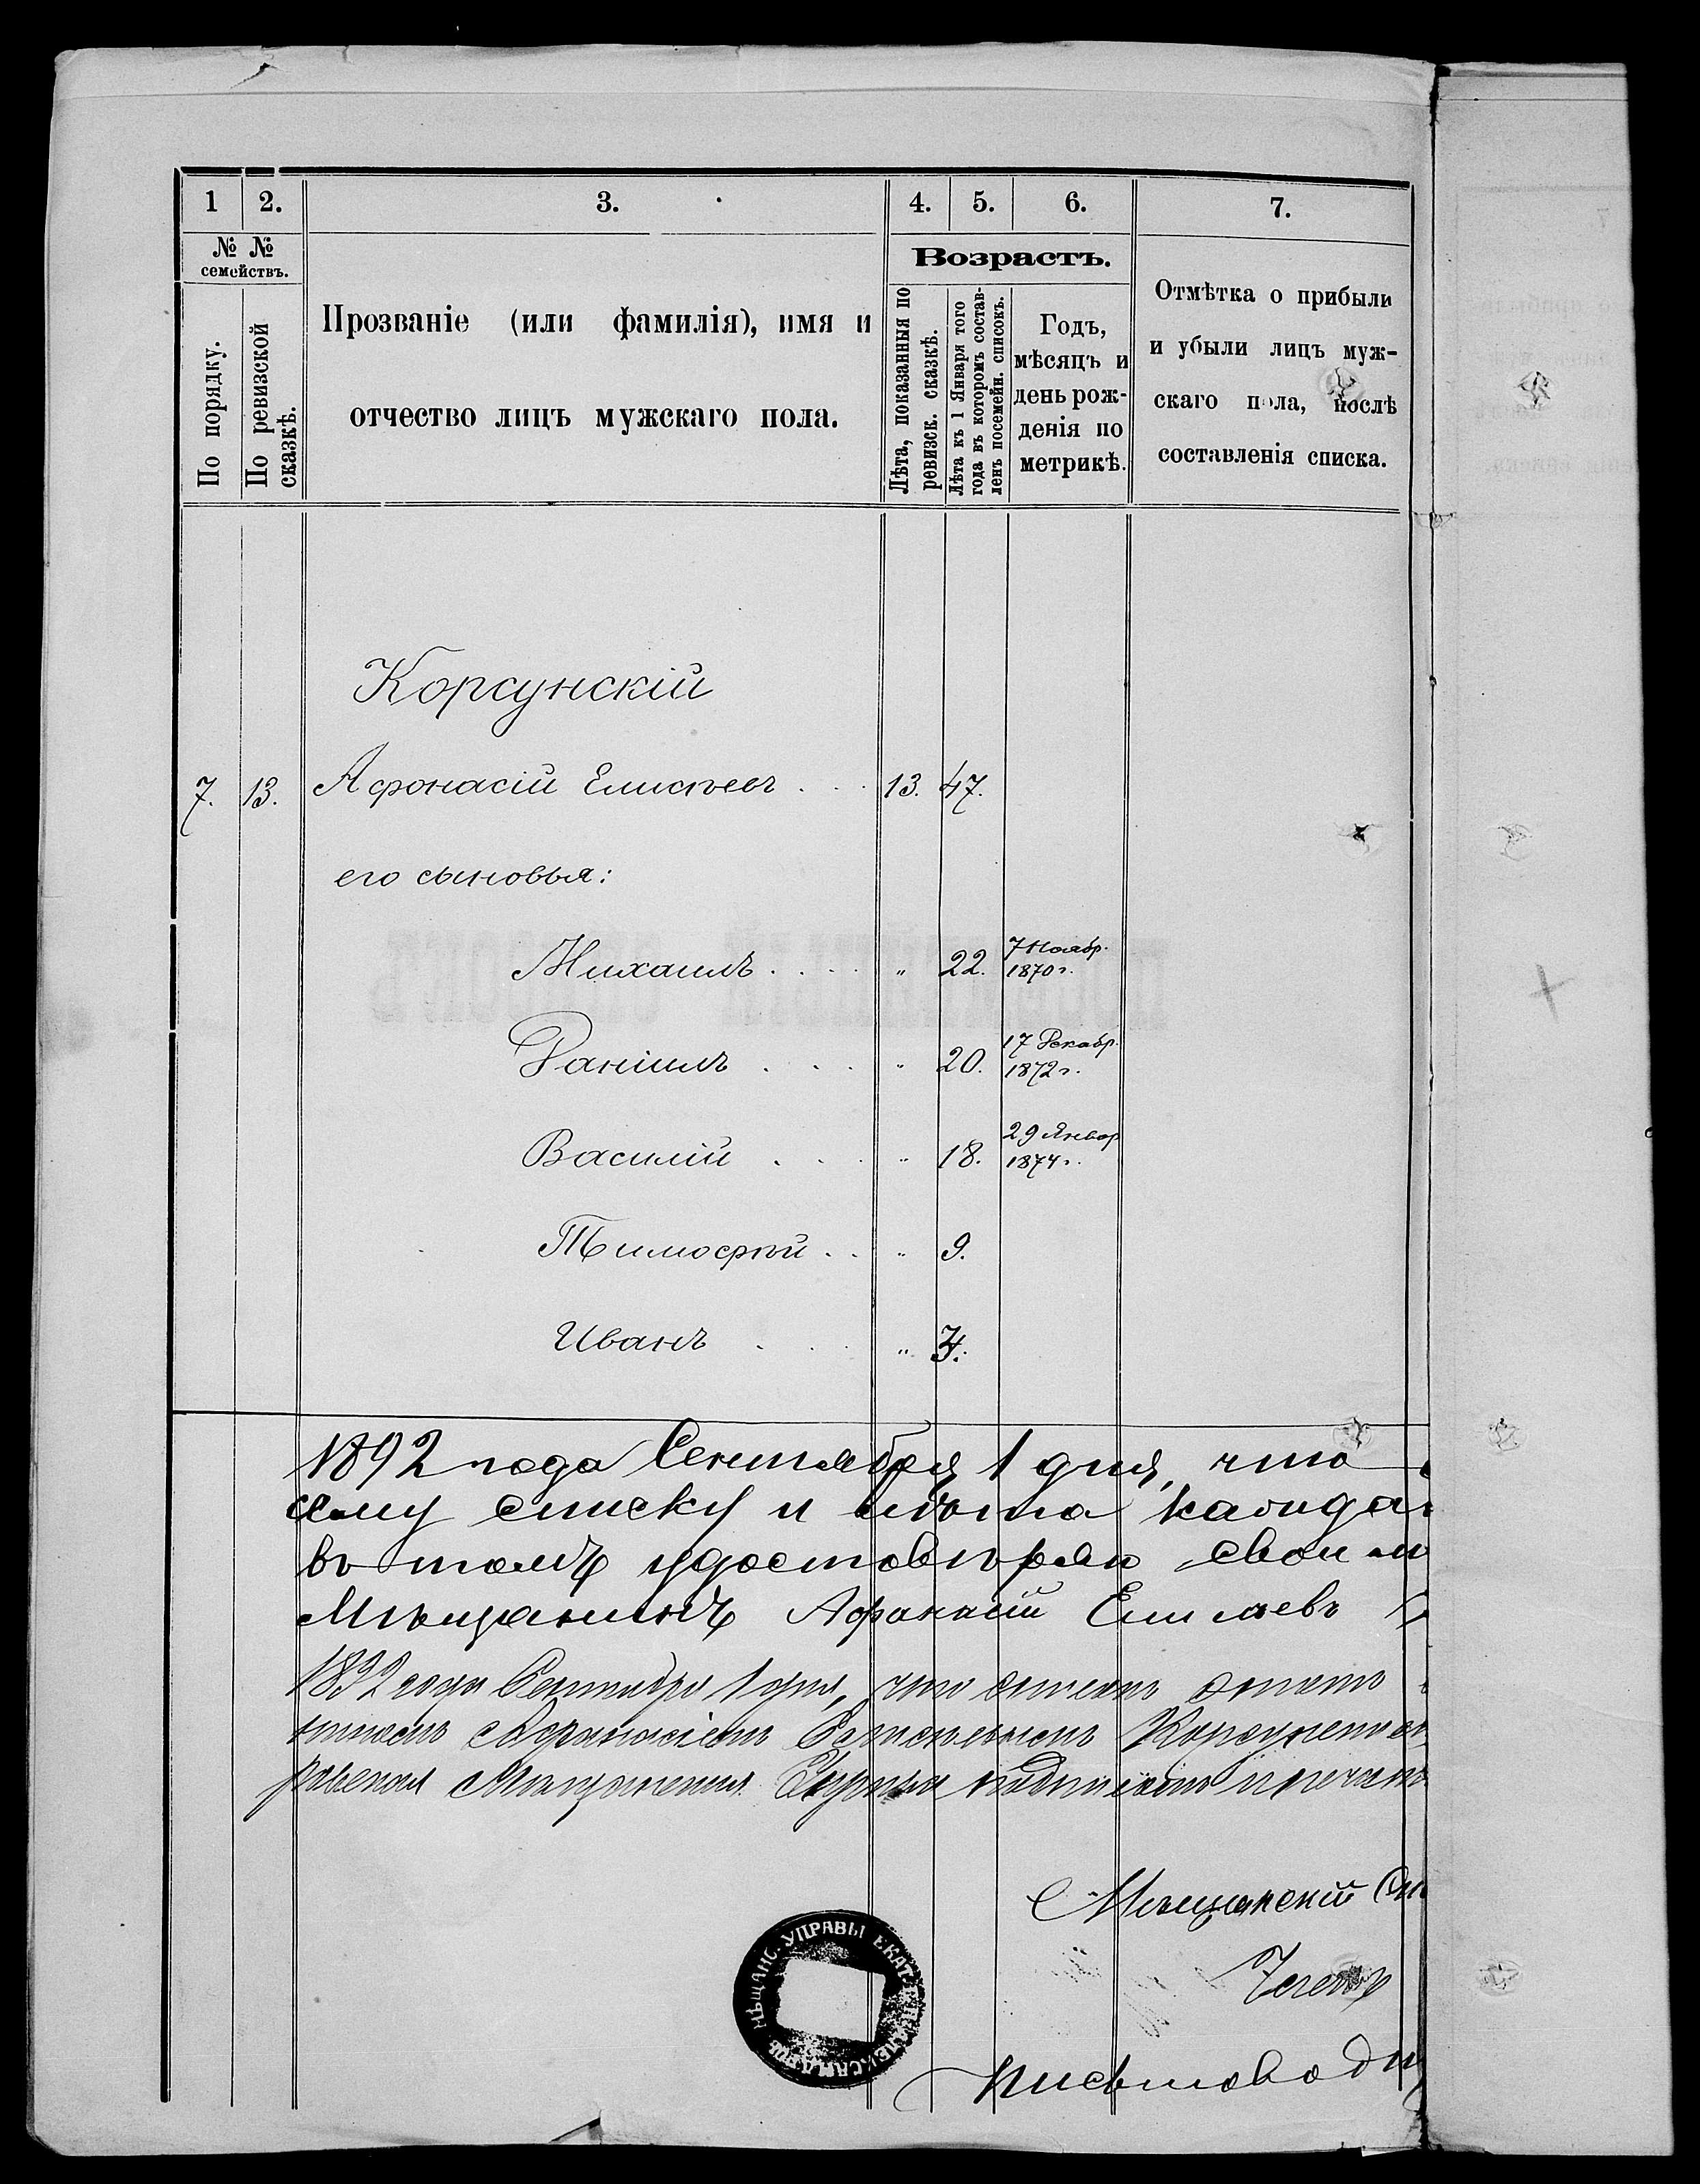 1 2. 3. 4. 5. 6. 7.
№ № семействъ.
По порядку.
По ревизской сказкѣ.
Прозваніе (или фамилія), имя и
отчество лицъ мужскаго пола.
Возрастъ.
Лѣта, показанныя по
ревизск. сказкѣ.
Лѣта къ 1 Января того
года въ которомъ состав-
ленъ посемейн. списокъ.
Годъ,
мѣсяцъ и
день рож-
денія по
метрикѣ.
Отмѣтка о прибыли
и убыли лицъ муж-
скаго пола, послѣ
составленія списка.
Корсунскій
7. 13. Афонасій Елисѣевъ . . . 13. 47.
его сыновья:
Михаилъ . . . . " 22. 7 Ноябр. 1870 г.
Даніилъ . . . " 20. 17 Декабр. 1872 г.
Василій . . . " 18. 29 Январ 1874 г.
Тимофѣй . . " 9.
Иванъ . . . "
1892 года Сентября 1 дня, что
сему списку и лѣта каждаг
въ томъ удостовѣряю свои
Мѣщанинъ Афанасій Елисѣевъ
1892 года Сентября 1 дня, что
Афанасіемъ Елисѣевымъ Корсунским
Мѣщанская Управа подписомъ и печат
Мѣщанскій Ст
МѢЩАНС. УПРАВЫ ЕКАТ
Письмоводи